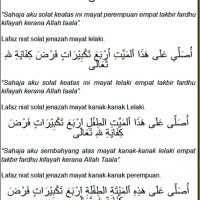 "Sahaja aku solat keatas ini mayat perempuan empat takbir fardhu
kifayah kerana Allah taala".
Lafaz niat solat jenazah mayat lelaki.
أُصَلِّي عَلَى هَذَا الْمَيِّتِ أَرْبَعَ تَكْبِيْرَاتٍ فَرْضَ كِفَايَةٍ لِلَّهِ
تَعَالَى
"Sahaja aku solat keatas ini mayat lelaki empat takbir fardhu
kifayah kerana Allah Taala".
Lafaz niat solat jenazah mayat kanak-kanak Lelaki.
أُصَلِّي عَلَى هَذَا الْمَيِّتِ الطِّفْلِ أَرْبَعَ تَكْبِيْرَاتٍ فَرْضَ
كِفَايَةٍ لِلَّهِ تَعَالَى
"Sahaja aku sembahyang atas mayat kanak-kanak lelaki empat
takbir fardu kifayah kerana Allah Taala".
Lafaz niat solat jenazah mayat kanak-kanak perempuan.
أُصَلِّي عَلَى هَذِهِ الْمَيِّتَةِ الطِّفْلَةِ أَرْبَعَ تَكْبِيْرَاتٍ فَرْضَ